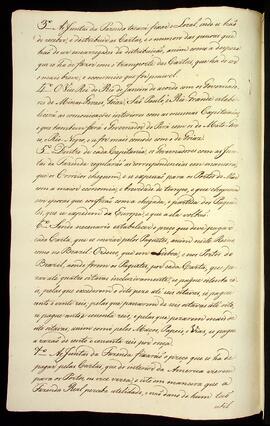 3.º A Junta da Fazenda terão fixado o Local, onde se hão
de vender, e distribuir as Cartas, e o numero das pessoas que
hão de ser encarregadas da distribuição, assim como a despeza
que se ha de fazer com o transporte das Cartas, que ha de ser
o mais breve, e economico que for possivel.
4.º O Vice Rei do Rio de Janeiro de acordo com os Governadores
de Minas Geraes, Goiaz, São Paulo, e Rio Grande estabele-
cerá as comunicações interiores com as mesmas Capitanias,
e que tambem fará o Governador do Pará com o de Mato Gros-
so, e Rio Negro, e se for mais comodo com o de Goiaz.
5.º Dentro de cada Capitania, o Governador com a Jun-
ta da Fazenda regularão as correspondencias em maneira,
que os Correios cheguem, e se expeçam para os Portos de Mar
com a maior economia, e brevidade de tempo, e que cheguem
em épocas que coincidam com a chegada, e partida dos Paque-
tes, que se expedirem da Europa, e que a ela voltão.
6.º Sendo necessario estabelecer o preço que deve pagar
cada Carta, que se enviar pelos Paquetes, assim neste Reino
como no Brazil: Ordeno, que em Lisboa, e nos Portos do
Brazil, aonde forem os Paquetes, por cada Carta, que pe-
zar até quatro oitavas inclusivamente, se paguem oitenta re-
is, pelas que excederem, e dahi para até seis oitavas, se
pague cento e vinte reis, pelas que passarem de seis oitavas até oito, se
pague cento e sessenta reis, e pelas que pezarem mais de oi-
to oitavas, assim como pelos Maços, Papeis, e Vias, se pague
a razão de cento e oitenta reis por onça.
7.º A Junta da Fazenda fixará o preço que se ha de
pagar pelas Cartas, que do interior da America vierem
para os Portos, ou vice versa; e isto em maneira que a
Fazenda Real perceba utilidade, e sem dano de hum tão
util